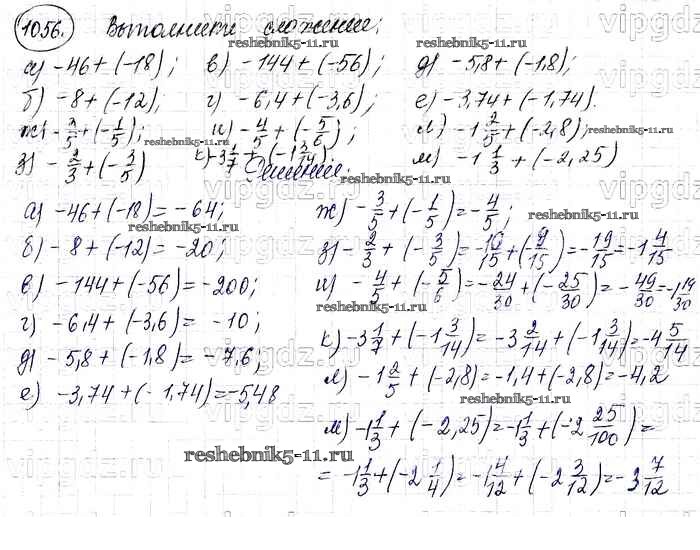 1056. Выполните сложение:
а) -46+(-18); в) -144+(-56); д) -5,8+(-1,8);
б) -8+(-12); г) -6,4+(-3,6); е) -3,74+(-1,74).
ж) -3/5+(-1/5); и) -4/5+(-5/6); л) -1 2/5+(-2,8);
з) -2/3+(-3/5) к) -3 1/7+(-1 3/14) м) -1 1/3+(-2,25)
Решение:
а) -46+(-18)=-64;
б) -8+(-12)=-20;
в) -144+(-56)=-200;
г) -6,4+(-3,6)= -10;
д) -5,8+(-1,8)=-7,6;
е) -3,74+(-1,74)=-5,48
ж) -3/5+(-1/5)=-4/5;
з) -2/3+(-3/5)=-10/15+(-9/15)=-19/15=-1 4/15
и) -4/5+(-5/6)=-24/30+(-25/30)=-49/30=-1 19/30
к) -3 1/7+(-1 3/14)=-3 2/14+(-1 3/14)=-4 5/14
л) -1 2/5+(-2,8)=-1,4+(-2,8)=-4,2
м) -1 1/3+(-2,25)=-1 1/3+(-2 25/100)=
=-1 1/3+(-2 1/4)=-1 4/12+(-2 3/12)=-3 7/12
reshebnik5-11.ru
reshebnik5-11.ru
reshebnik5-11.ru
reshebnik5-11.ru
reshebnik5-11.ru
reshebnik5-11.ru
reshebnik5-11.ru
reshebnik5-11.ru